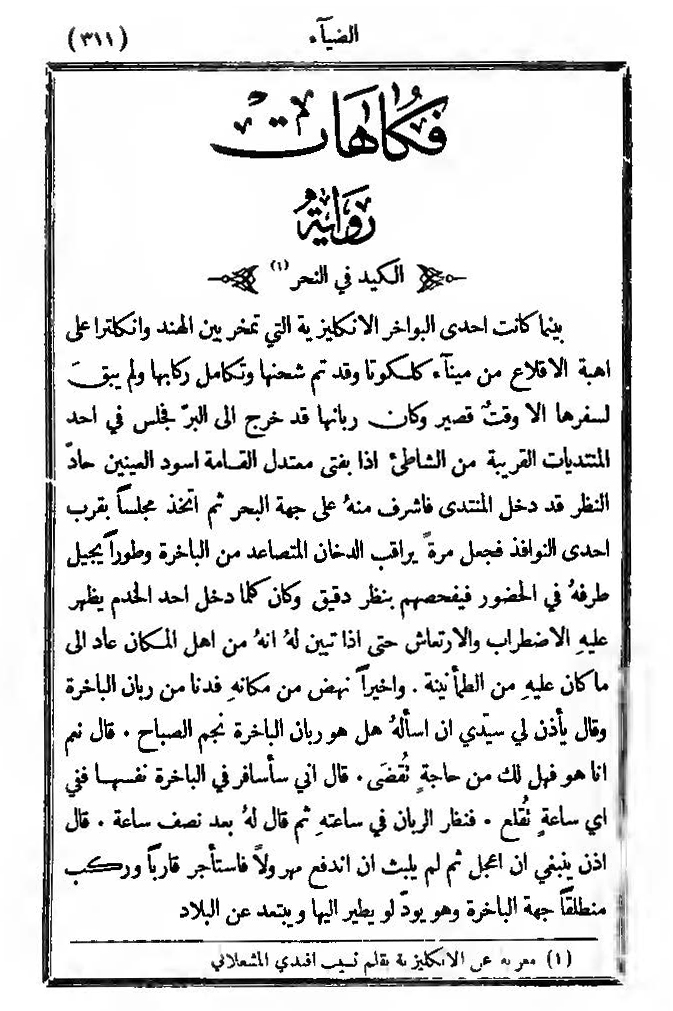 الضيآء
(٣١١)
فُكَاهَات
رِوَايَةُ
الكيد في النحر (١)
بينما كانت احدى البواخر الانكليزية التي تمخر بين الهند وانكلترا على
اهبة الاقلاع من مينآء كلكوتا وقد تم شحنها وتكامل ركابها ولم يبقَ
لسفرها الا وقتٌ قصير وكان ربانها قد خرج الى البرّ فجلس في احد
المنتديات القريبة من الشاطئ اذا بفتى معتدل القامة اسود العينين حادّ
النظر قد دخل المنتدى فاشرف منهُ على جهة البحر ثم اتخذ مجلساً بقرب
احدى النوافذ فجعل مرةً يراقب الدخان المتصاعد من الباخرة وطوراً يجيل
طرفهُ في الحضور فيفحصهم بنظر دقيق وكان كلما دخل احد الخدم يظهر
عليهِ الاضطراب والارتعاش حتى اذا تبين لهُ انهُ من اهل المكان عاد الى
ما كان عليهِ من الطمأنينة . واخيراً نهض من مكانهِ فدنا من ربان الباخرة
وقال يأذن لي سيّدي ان اسألهُ هل هو ربان الباخرة نجم الصباح . قال نعم
انا هو فهل لك من حاجةٍ تُقضَى . قال اني سأسافر في الباخرة نفسها ففي
اي ساعةٍ تُقلع . فنظر الربان في ساعتهِ ثم قال لهُ بعد نصف ساعة . قال
اذن ينبغي ان اعجل ثم لم يلبث ان اندفع مهرولاً فاستأجر قارباً وركب
منطلقاً جهة الباخرة وهو يودّ لو يطير اليها ويبتعد عن البلاد
(١) معربة عن الانكليزية بقلم نسيب افندي المشعلاني